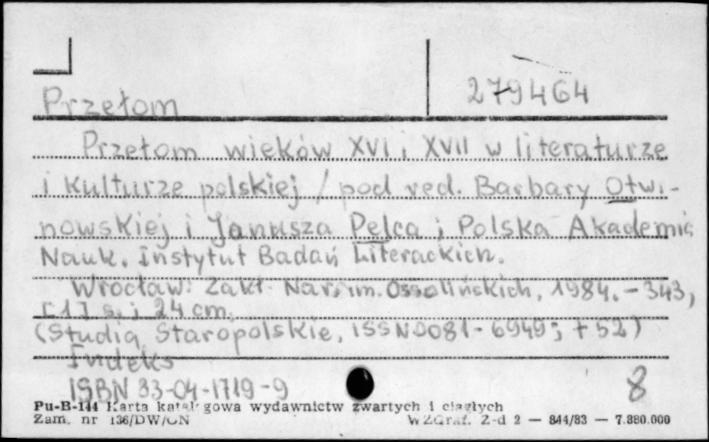 279464
Przełom
Przełom wieków XVI i XVII w literaturze
i kulturze polskiej / pod red. Barbary Otwi-
nowskiej i Janusza Pelca ; Polska Akademia
Nauk. Instytut Badań Literackich.
Wrocław: Zakł. Nar. im. Ossolińskich, 1984. - 343,
[1] s. ; 24 cm.
(Studia Staropolskie, ISSN 0081-6949 ; t 52)
Indeks
ISBN 83-04-1719-9
8
Pu-B-144 Karta katalogowa wydawnictw zwartych i ciągłych
Zam. nr 136/DW/CN WZGraf. Z-d 2 — 844/83 — 7.880.000